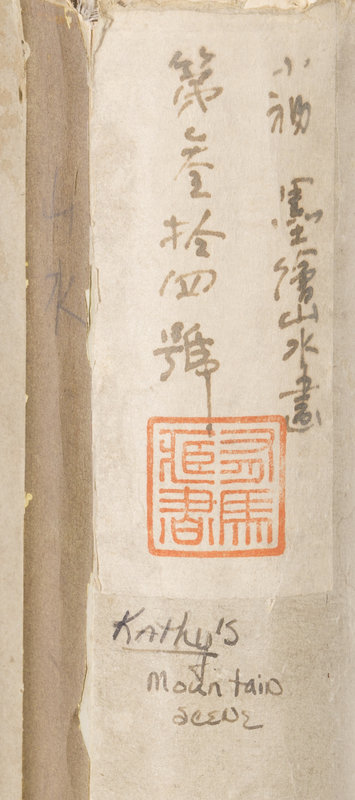 小袖 墨繪山水畫
第叁拾四號
有馬
藏書
山水
Kathy's
Mountain
SCENE